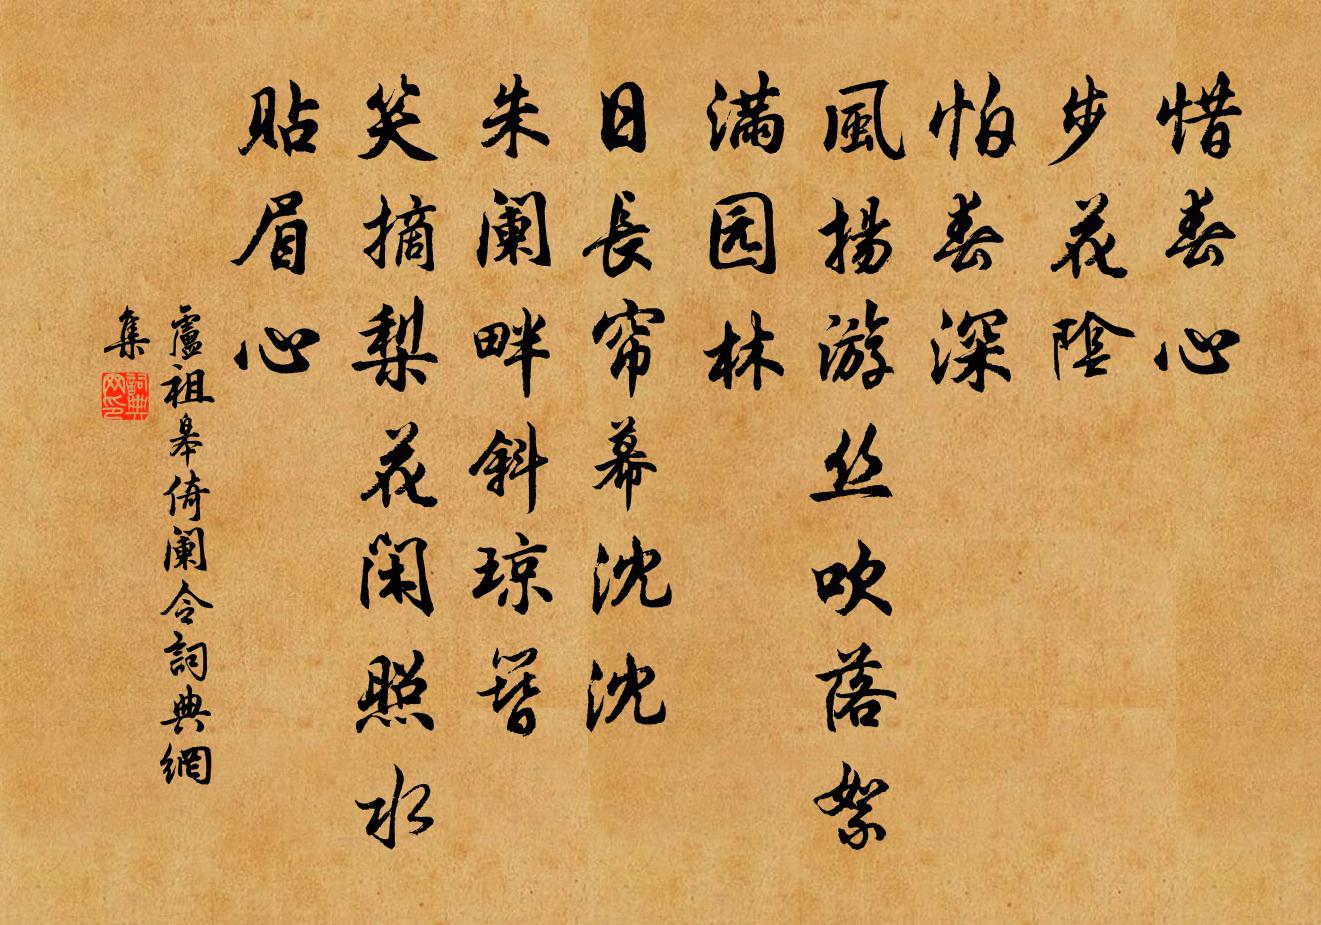 惜春心
步花陰
怕春深
風揚游丝吹落絮
满园林
日長帘幕沈沈
朱阑畔斜琼簪
笑摘梨花闲照水
貼眉心
盧祖皋倚阑令詞典網
集
詞典网印